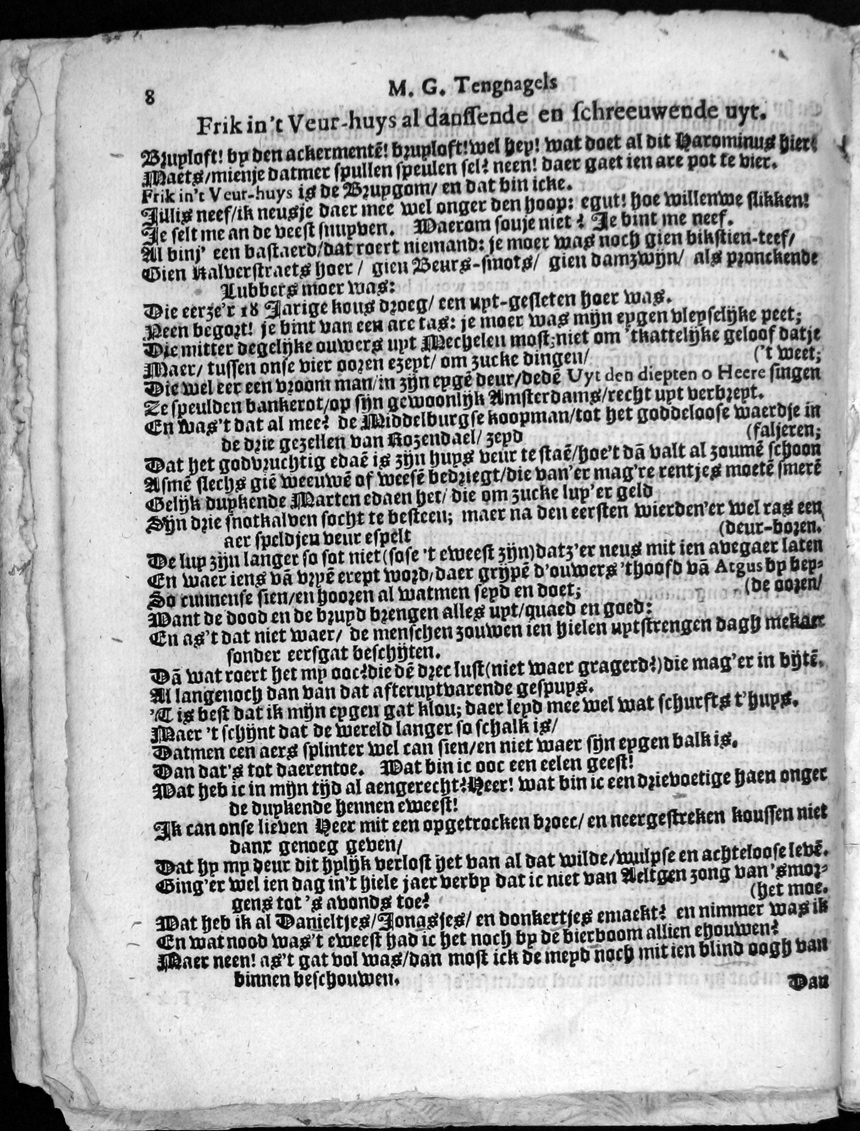 8
M. G. Tengnagels
Frik in't Veur-huys al danssende en schreeuwende uyt.
Bruyloft! by den ackermentē! bruyloft! wel hey! wat doet al dit Harominus hier?
Maets/mienje datmer spullen speulen sel? neen! daer gaet ien are pot te vier.
Frik in't Veur-huys is de Bruygom/ en dat bin icke.
Jillis neef/ik neusje daer mee wel onger den hoop: egut! hoe willenwe slikken!
Je selt me an de veest snuyven. Waerom souje niet? Je bint me neef.
Al binj' een bastaerd/dat roert niemand: je moer was noch gien bikstien-teef/
Gien Kalverstraets hoer/ gien Beurs-smots/ gien damzwijn/ als pronckende
Lubbers moer was:
Die eerze'r 18 Jarige kous droeg/ een uyt-gesleten hoer was.
Neen begort! je bint van een are tas: je moer was mijn eygen vleyselijke peet;
Die mitter degelijke ouwers uyt Mechelen most; niet om 'tkattelijke geloof datje
Maer/ tussen onse vier ooren ezeyt/ om zucke dingen/ ('t weet;
Die wel eer een vroom man/in zijn eygē deur/dedē Uyt den diepten o Heere singen
Ze speulden bankerot/op sijn gewoonlijk Amsterdams/recht uyt verbreyt.
En was't dat al mee? de Middelburgse koopman/tot het goddeloose waerdje in
de drie gezellen van Rozendael/ zeyd (faljeren;
Dat het godvruchtig edaē is zijn huys veur te staē/hoe't dā valt al zoumē schoon
Asmē slechs giē weeuwē of weesē bedriegt/die van'er mag're rentjes moetē smerē
Gelijk duykende Marten edaen het/ die om zucke luy'er geld
Sijn drie snotkalven socht te besteen; maer na den eersten wierden'er wel ras een
aer speldjen veur espelt (deur-boren.
De luy zijn langer so sot niet(sose 't eweest zijn)datz'er neus mit ien avegaer laten
En waer iens vā vryē ereyt word/daer grijpē d'ouwers 'thoofd vā Argus by bey-
So cunnense sien/en hooren al watmen seyd en doet; (de ooren/
Want de dood en de bruyd brengen alles uyt/quaed en goed:
En as't dat niet waer/ de menschen zouwen ien hielen uytstrengen dagh mekaer
sonder eersgat beschijten.
Dā wat roert het my ooc? die dē drec lust(niet waer gragerd?)die mag'er in bijtē.
Al langenoch dan van dat afteruytvarende gespuys.
'T is best dat ik mijn eygen gat klou; daer leyd mee wel wat schurfts t'huys.
Maer 't schijnt dat de wereld langer so schalk is/
Datmen een aers splinter wel can sien/en niet waer sijn eygen balk is.
Dan dat's tot daerentoe. Wat bin ic ooc een eelen geest!
Wat heb ic in mijn tijd al aengerecht? Heer! wat bin ic een drievoetige haen onger
de duykende hennen eweest!
Ik can onse lieven Heer mit een opgetrocken broec/ en neergestreken koussen niet
danx genoeg geven/
Dat hy my deur dit hylijk verlost het van al dat wilde/wulpse en achteloose levē.
Ging'er wel ien dag in't hiele jaer verby dat ic niet van Aeltgen zong van 'smor-
gens tot 's avonds toe? (het moe.
Wat heb ik al Danieltjes/Jonasjes/ en donkertjes emaekt? en nimmer was ik
En wat nood was't eweest had ic het noch by de bierboom allien ehouwen?
Maer neen! as't gat vol was/dan most ick de meyd noch mit ien blind oogh van
binnen beschouwen.
Dan